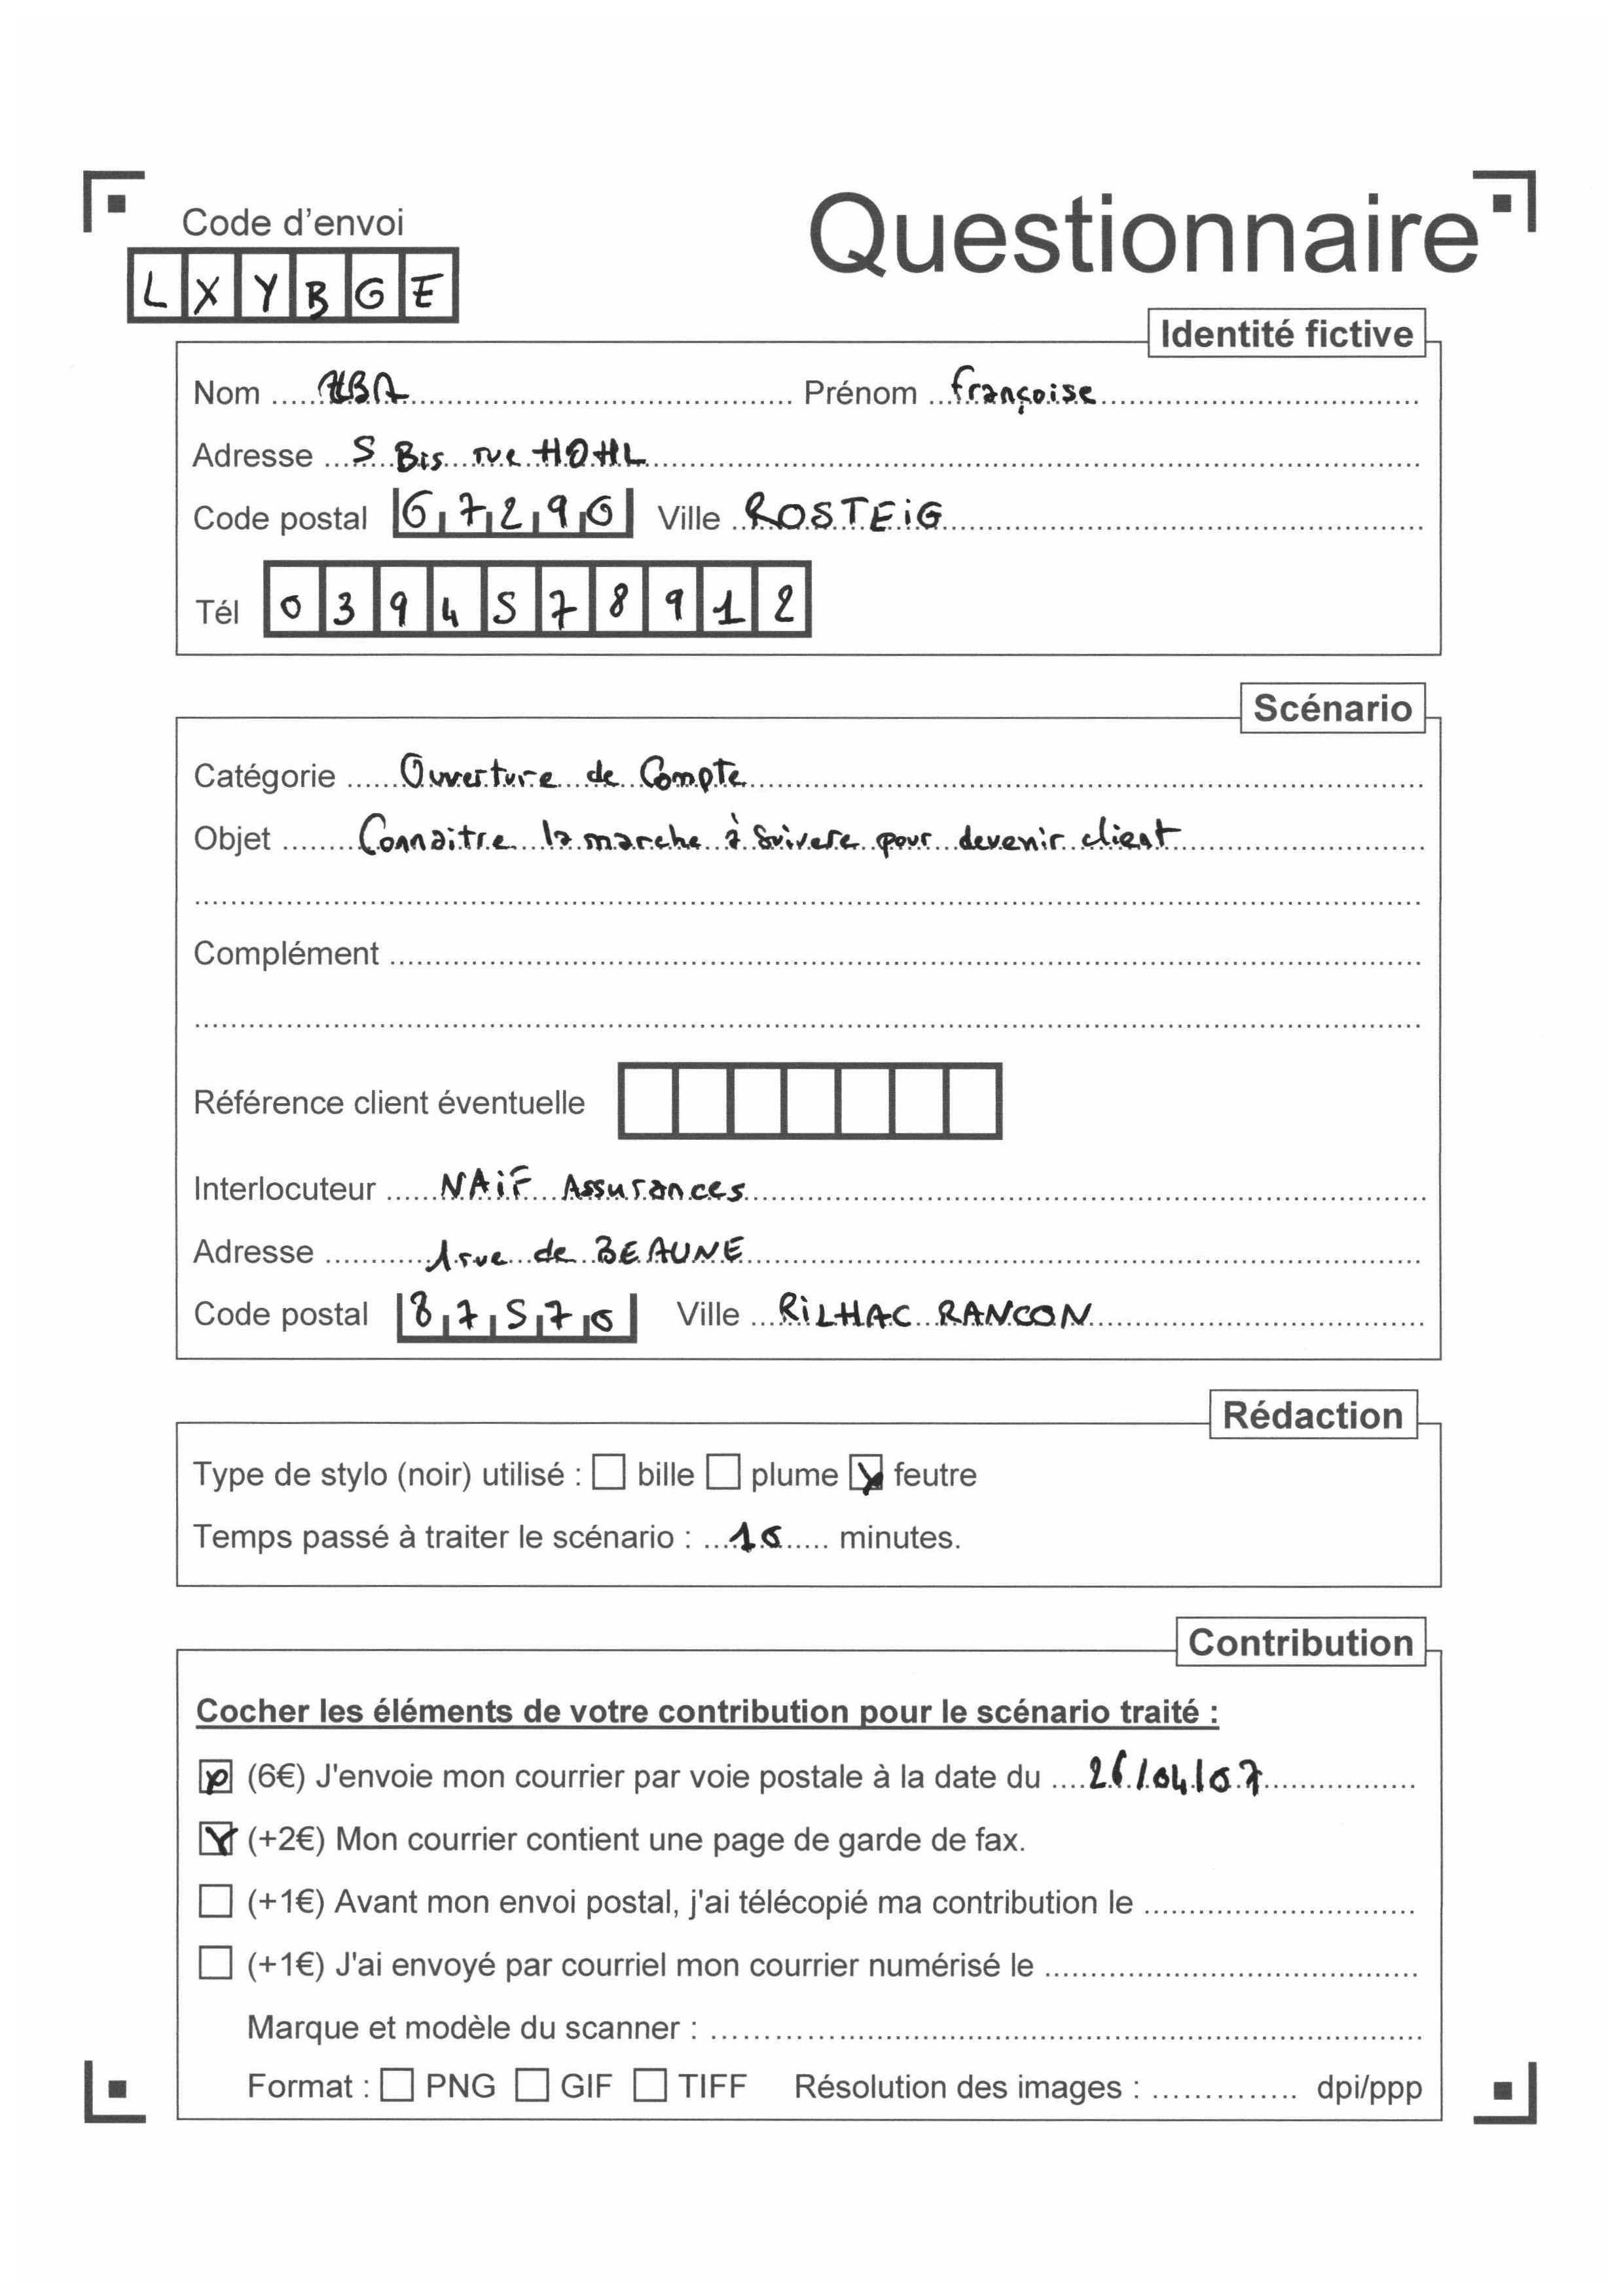 Code d'envoi
Questionnaire
LXYBGE
Identité fictive
Nom ABA Prénom Françoise
Adresse 5 Bis rue HOHL
Code postal 67290 Ville ROSTEIG
Tél 0394578912
Scénario
Catégorie Ouverture de Compte
Objet Connaitre la marche à suivere pour devenir client
Complément
Référence client éventuelle
Interlocuteur NAIF Assurances
Adresse 1 rue de BEAUNE
Code postal 87570 Ville RILHAC RANCON
Rédaction
Type de stylo (noir) utilisé : bille plume feutre
Temps passé à traiter le scénario : 10 minutes.
Contribution
Cocher les éléments de votre contribution pour le scénario traité :
(6€) J'envoie mon courrier par voie postale à la date du 26/04/07
(+2€) Mon courrier contient une page de garde de fax.
(+1€) Avant mon envoi postal, j'ai télécopié ma contribution le
(+1€) J'ai envoyé par courriel mon courrier numérisé le
Marque et modèle du scanner :
Format : PNG GIF TIFF Résolution des images : dpi/ppp